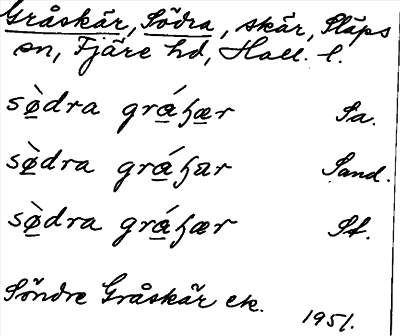 Gråskär, Södra, skär, Släps
sn, Fjäre hd, Hall. l.
sø̀dra gráɧær Sa.
sø̀dra gráɧar Sand.
sø̀dra gráɧær St.
Söndre Gråskär ek.
1951.